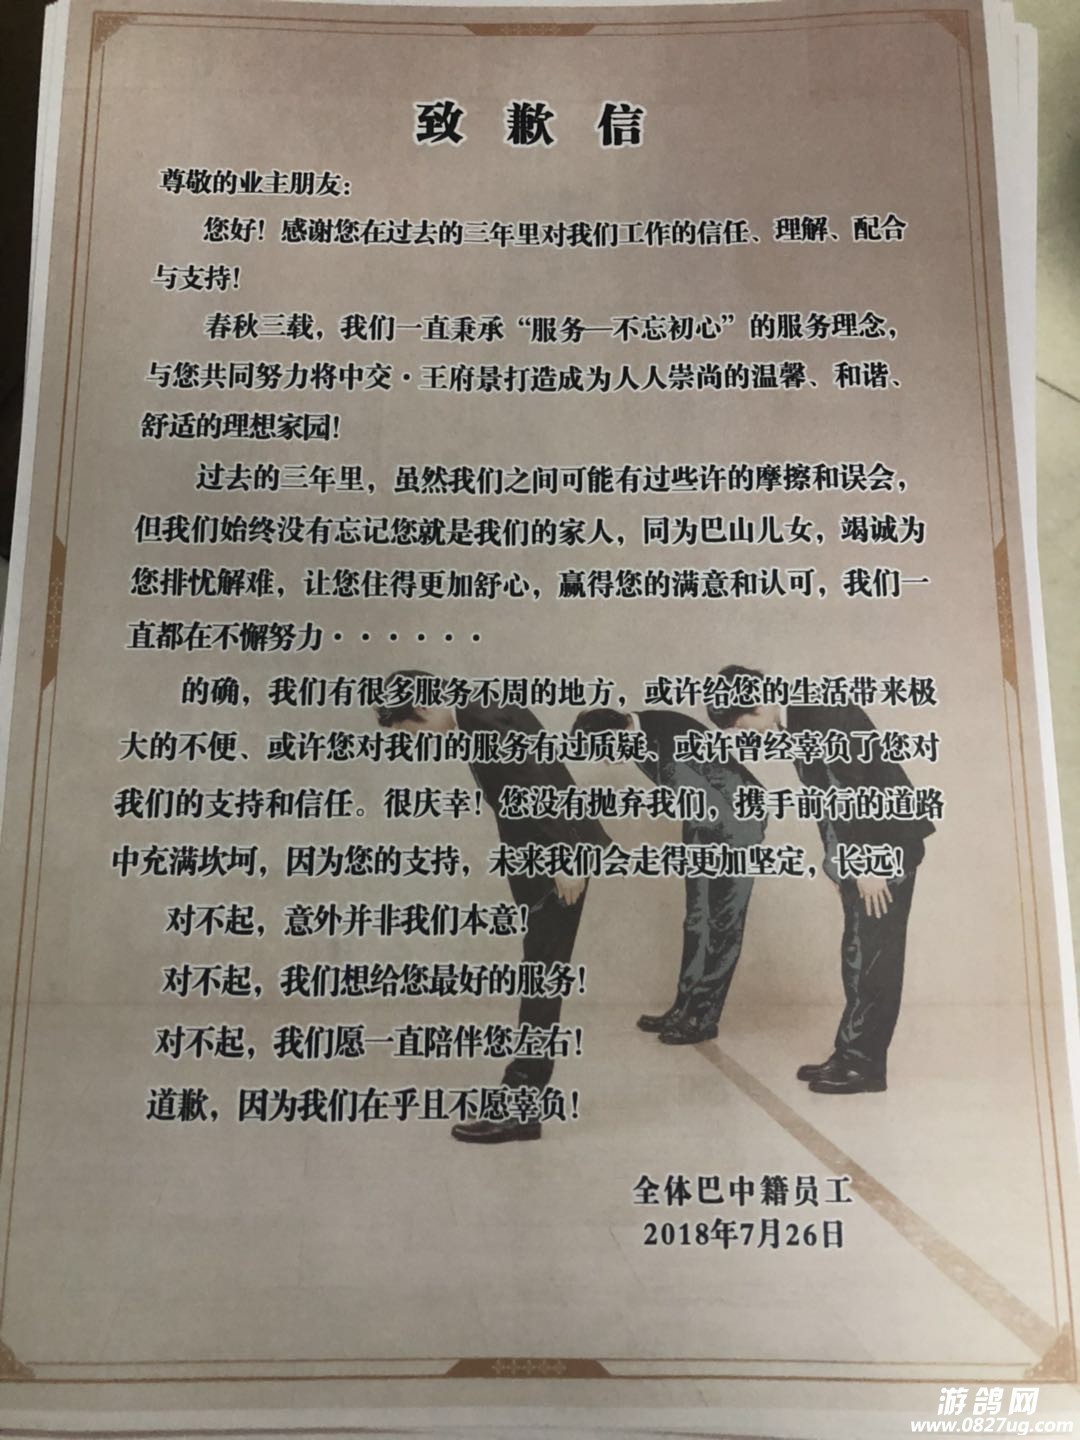 致歉信
尊敬的业主朋友：
您好！感谢您在过去的三年里对我们工作的信任、理解、配合
与支持！
春秋三载，我们一直秉承“服务—不忘初心”的服务理念，
与您共同努力将中交·王府景打造成为人人崇尚的温馨、和谐、
舒适的理想家园！
过去的三年里，虽然我们之间可能有过些许的摩擦和误会，
但我们始终没有忘记您就是我们的家人，同为巴山儿女，竭诚为
您排忧解难，让您住得更加舒心，赢得您的满意和认可，我们一
直都在不懈努力······
的确，我们有很多服务不周的地方，或许给您的生活带来极
大的不便、或许您对我们的服务有过质疑、或许曾经辜负了您对
我们的支持和信任。很庆幸！您没有抛弃我们，携手前行的道路
中充满坎坷，因为您的支持，未来我们会走得更加坚定，长远！
对不起，意外并非我们本意！
对不起，我们想给您最好的服务！
对不起，我们愿一直陪伴您左右！
道歉，因为我们在乎且不愿辜负！
全体巴中籍员工
2018年7月26日
游鸽网
www.0827ug.com